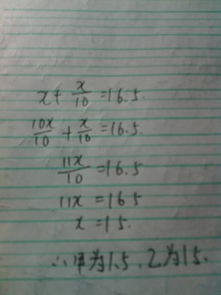 x + x/10 = 16.5.
10x/10 + x/10 = 16.5
11x/10 = 16.5
11x = 165
x = 15.
∴甲为1.5,乙为15.